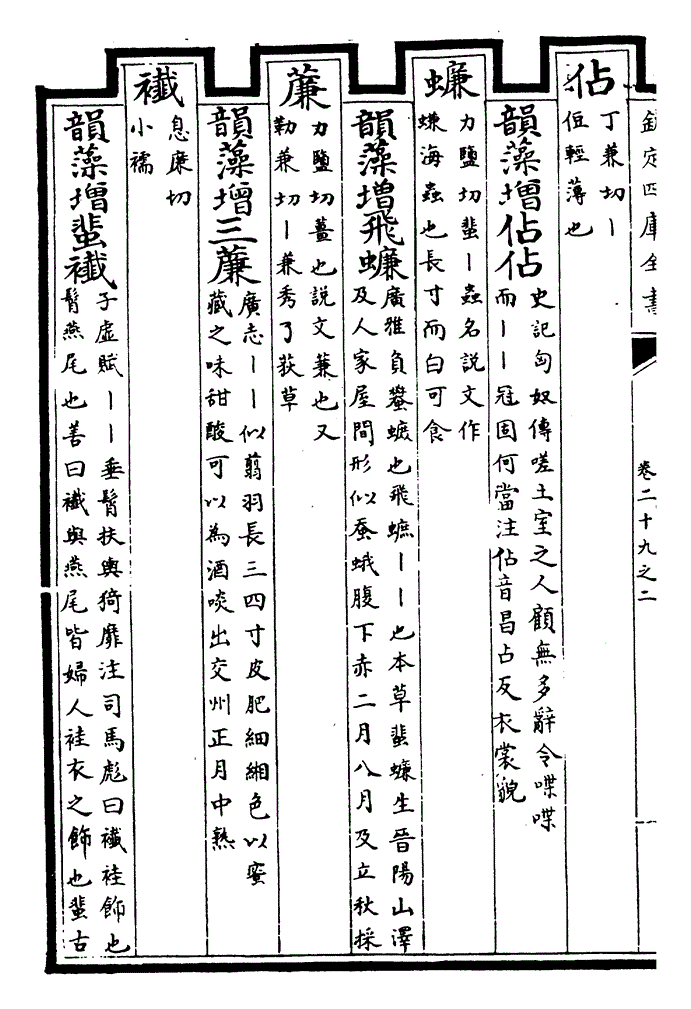 欽定四庫全書
卷二十九之二
佔
丁兼切丨
佢輕薄也
韻藻增佔佔
史記匈奴傳嗟土室之人顧無多辭令喋喋
而丨丨冠固何當注佔音昌占反衣裳貌
蠊
力鹽切蜚丨蟲名說文作
蠊海蟲也長寸而白可食
韻藻増飛蠊
廣雅負蠜蟅也飛蟅丨丨也本草蜚蠊生晉陽山澤
及人家屋間形似蚕蛾腹下赤二月八月及立秋採
薕
力鹽切薑也說文蒹也又
勒兼切丨蒹秀了荻草
韻藻增三薕
廣志丨丨似翦羽長三四寸皮肥細緗色以蜜
藏之味甜酸可以為酒啖出交州正月中熟
襳
息廉切
小襦
韻藻增蜚襳
子虛賦丨丨垂髾扶輿猗靡注司馬彪曰襳袿飾也
髾燕尾也善曰襳與燕尾皆婦人袿衣之飾也蜚古